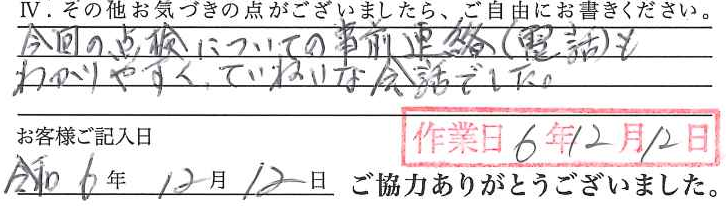 Ⅳ．その他お気づきの点がございましたら、ご自由にお書きください。
今回の点検についての事前連絡(電話)も
わかりやすく、ていねいな会話でした。
お客様ご記入日
作業日 6年12月12日
令和6年12月12日 ご協力ありがとうございました。